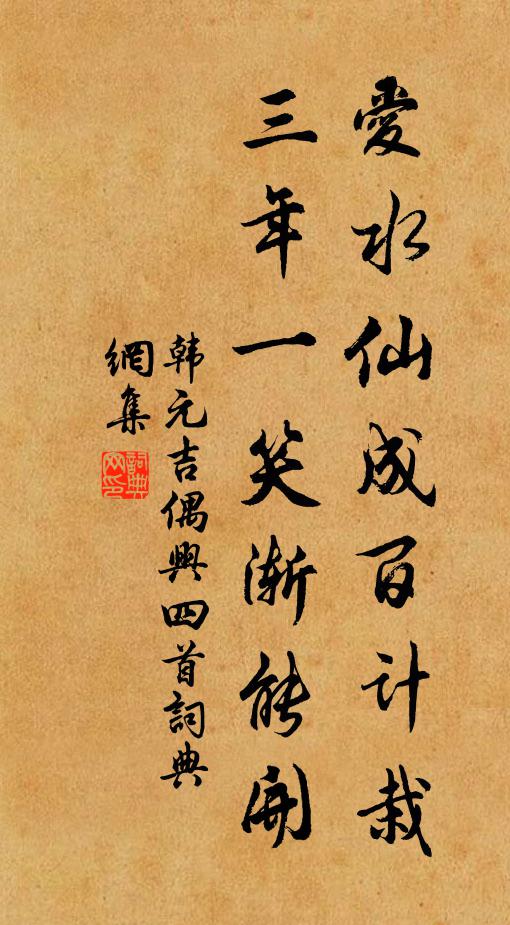 愛水仙成百计栽
三年一笑渐能開
韩元吉偶興四首詞典
網集
詞典
网印